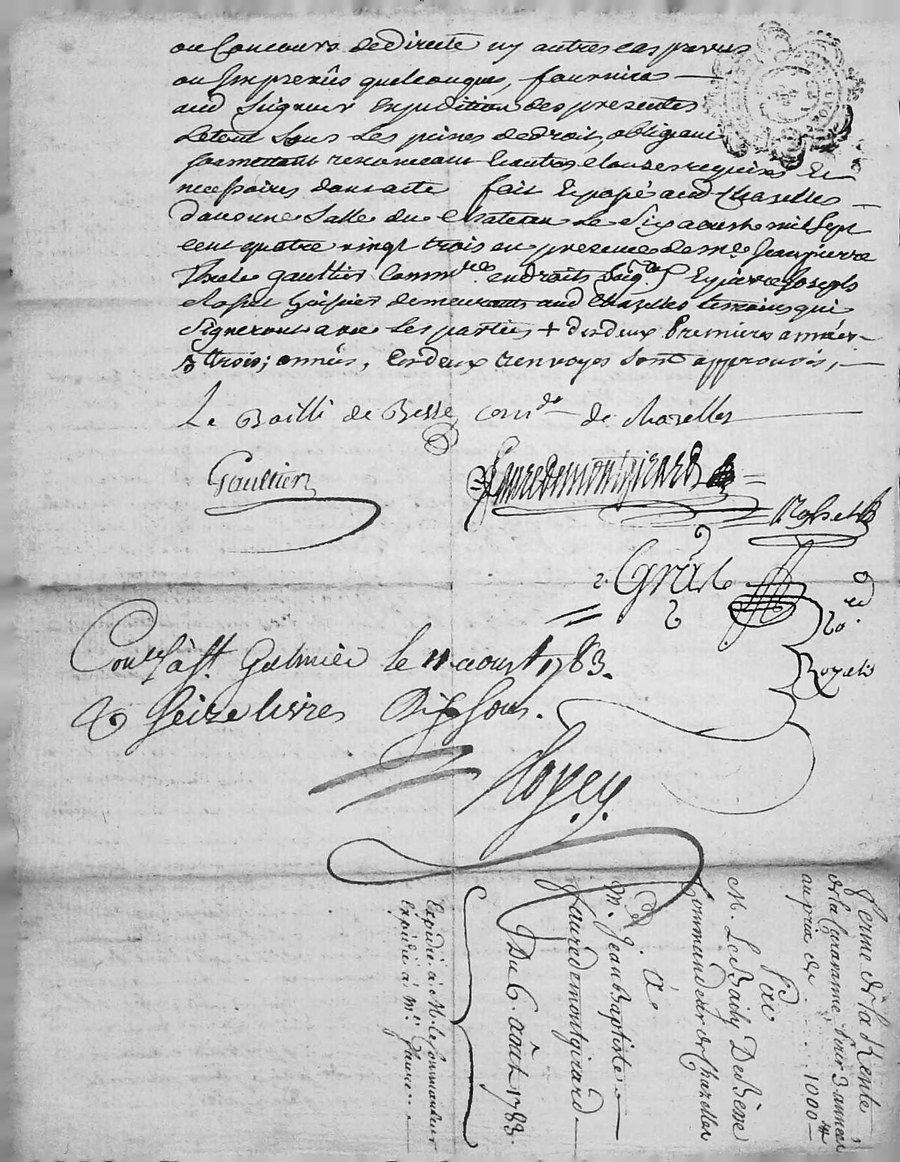 ou Concours de directe ny autres cas prevus
ou Impreveûs quelconques, fournira
aud Seigneur Expedition des presentes
Letout sous les peines de droit, obligeant
soumettant renonceant & autres clauses requises Et
necessaires dont acte fait Et passé aud Chazelles
dans une Salle du Chateau Le Six aoust mil Sept
cent quatre vingt trois en presence de me. Jean pierre
gaultier Commre. en droits Seigx. Et pierre Joseph
demeurants aud Chazelles temoins qui
Signeront avec les parties + des deux premieres années
3 trois; années, les deux renvoyes sont approuvés,
Le Bailli de Besse comdr. de chazelles
Gaultier
fauredemontgirard
Gras
Royalis
Conllé à St. Galmier le 11 aoust 1783.
R seize livres dix sous.
ferme de la Rente
de la Caravanne, pour 3 années
au prix de .... 1000 ₶
Par
M. Le Bailly De Besse
Commandeur de Chazelles
à
M. Jean Baptiste
fauredemontgirard
Du 6. août 1783.
Expédié à M. le Commandeur
Expédié à Mr. faure